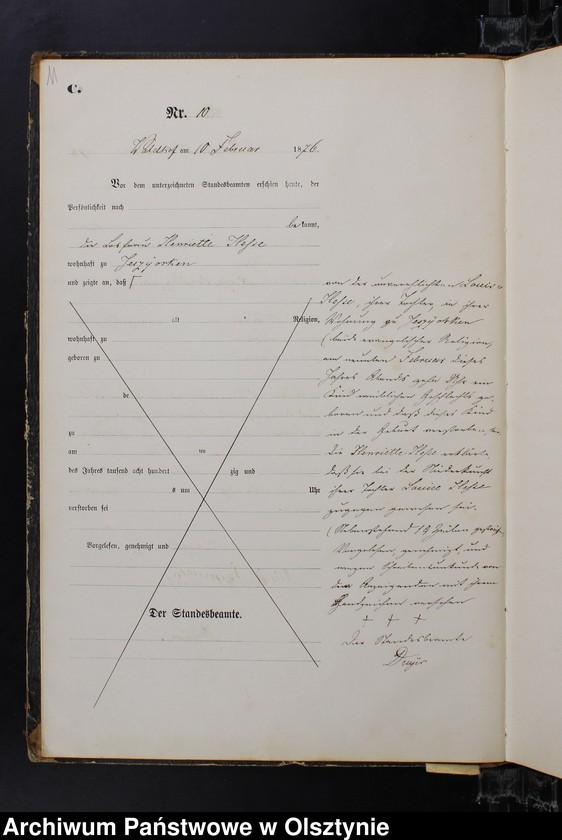 11
C.
Nr. 10
Waldhof am 10 Februar 1876.
Vor dem unterzeichneten Standesbeamten erschien heute, der
Persönlichkeit nach
bekannt,
die Losfrau Henriette Hesse
wohnhaft zu Jeszyorken
und zeigte an, daß
von der unverehlichten Louise
Hesse, ihrer Tochter, in ihrer
Wohnung zu Jeszyorken
(beide evangelischer Religion,
am neunten Februar dieses
Jahres Abends zehn Uhr ein
Kind weiblichen Geschlechts ge-
boren und daß dieses Kind
in der Geburt verstorben
Die Henriette Hesse erklärte
daß sie bei der Niederkunft
ihrer Tochter Louise Hesse
zugegen gewesen sei.
(Nebenstehend 13 Zeilen gestrich
Vorgelesen, genehmigt, und
wegen Schreibensunkunde von
der Anzeigenden mit ihrem
Handzeichen versehen
+ + +
Der Standesbeamte
alt Religion,
wohnhaft zu
geboren zu
de
zu
am wo
des Jahres tausend acht hundert zig und
s um Uhr
verstorben sei
Vorgelesen, genehmigt und
Der Standesbeamte.
Archiwum Państwowe w Olsztynie